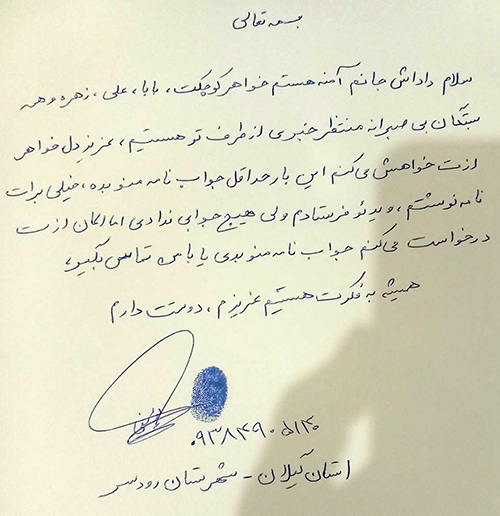 بسمه تعالی
سلام داداش جانم آمنه هستم خواهر کوچکت، بابا، علی، زهره و همه
بستگان بی صبرانه منتظر خبری از طرف تو هستیم، عزیز دل خواهر
ازت خواهش می‌کنم این بار حداقل جواب نامه منو بده، خیلی برات
نامه نوشتم، ویدئو فرستادم ولی هیچ جوابی ندادی اما الان ازت
درخواست می‌کنم جواب نامه منو بدی یا با من تماس بگیر،
همیشه به فکرت هستیم عزیزم، دوست دارم
۰۹۳۸۴۹۰۵۱۳۰
استان گیلان - شهرستان رودسر